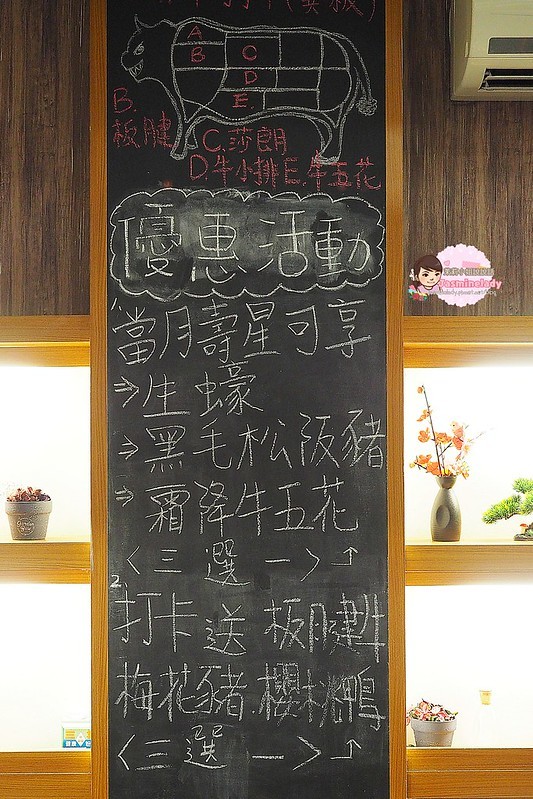 A
B
C
D
E
B.
板腱
C.莎朗
D.牛小排 E.牛五花
優惠活動
當月壽星可享
⇒生蠔
⇒黑毛松阪豬
⇒霜降牛五花
<三選一>↑
2.打卡送板腱牛
梅花豬.櫻桃鴨
<三選一>↑
Jasminelady